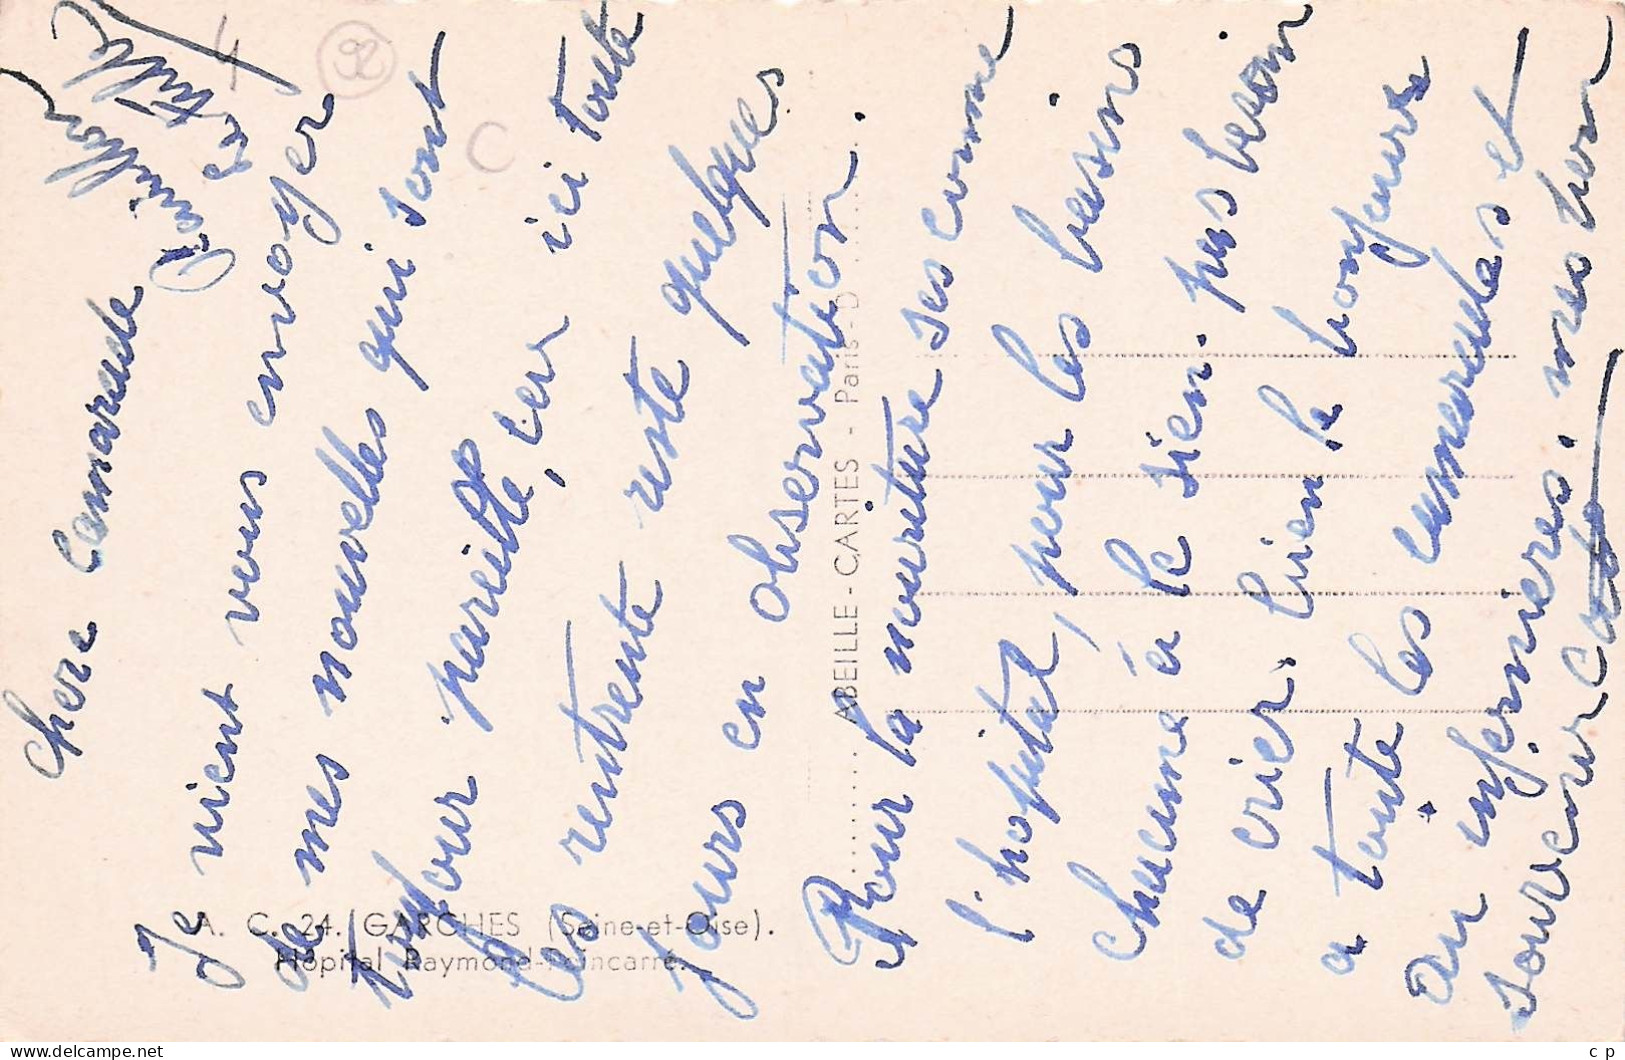 Chere Camarade
Je vient vous envoyer
de mes nouvelles qui sont
toujour pareille, cer ici toute
les rentrente reste quelques
jours en observation.
Pour la nouriture ses comme
l'hopital, pour les besins
chacune à le sien. pas besoin
de crier. bien le bonjoure
a toute les camarades et
au infermieres. mes bon
souvenir
4
92
C
A. C. 24. GARCHES (Seine-et-Oise).
Hôpital Raymond-Poincarré.
ABEILLE-CARTES - Paris-D
c p